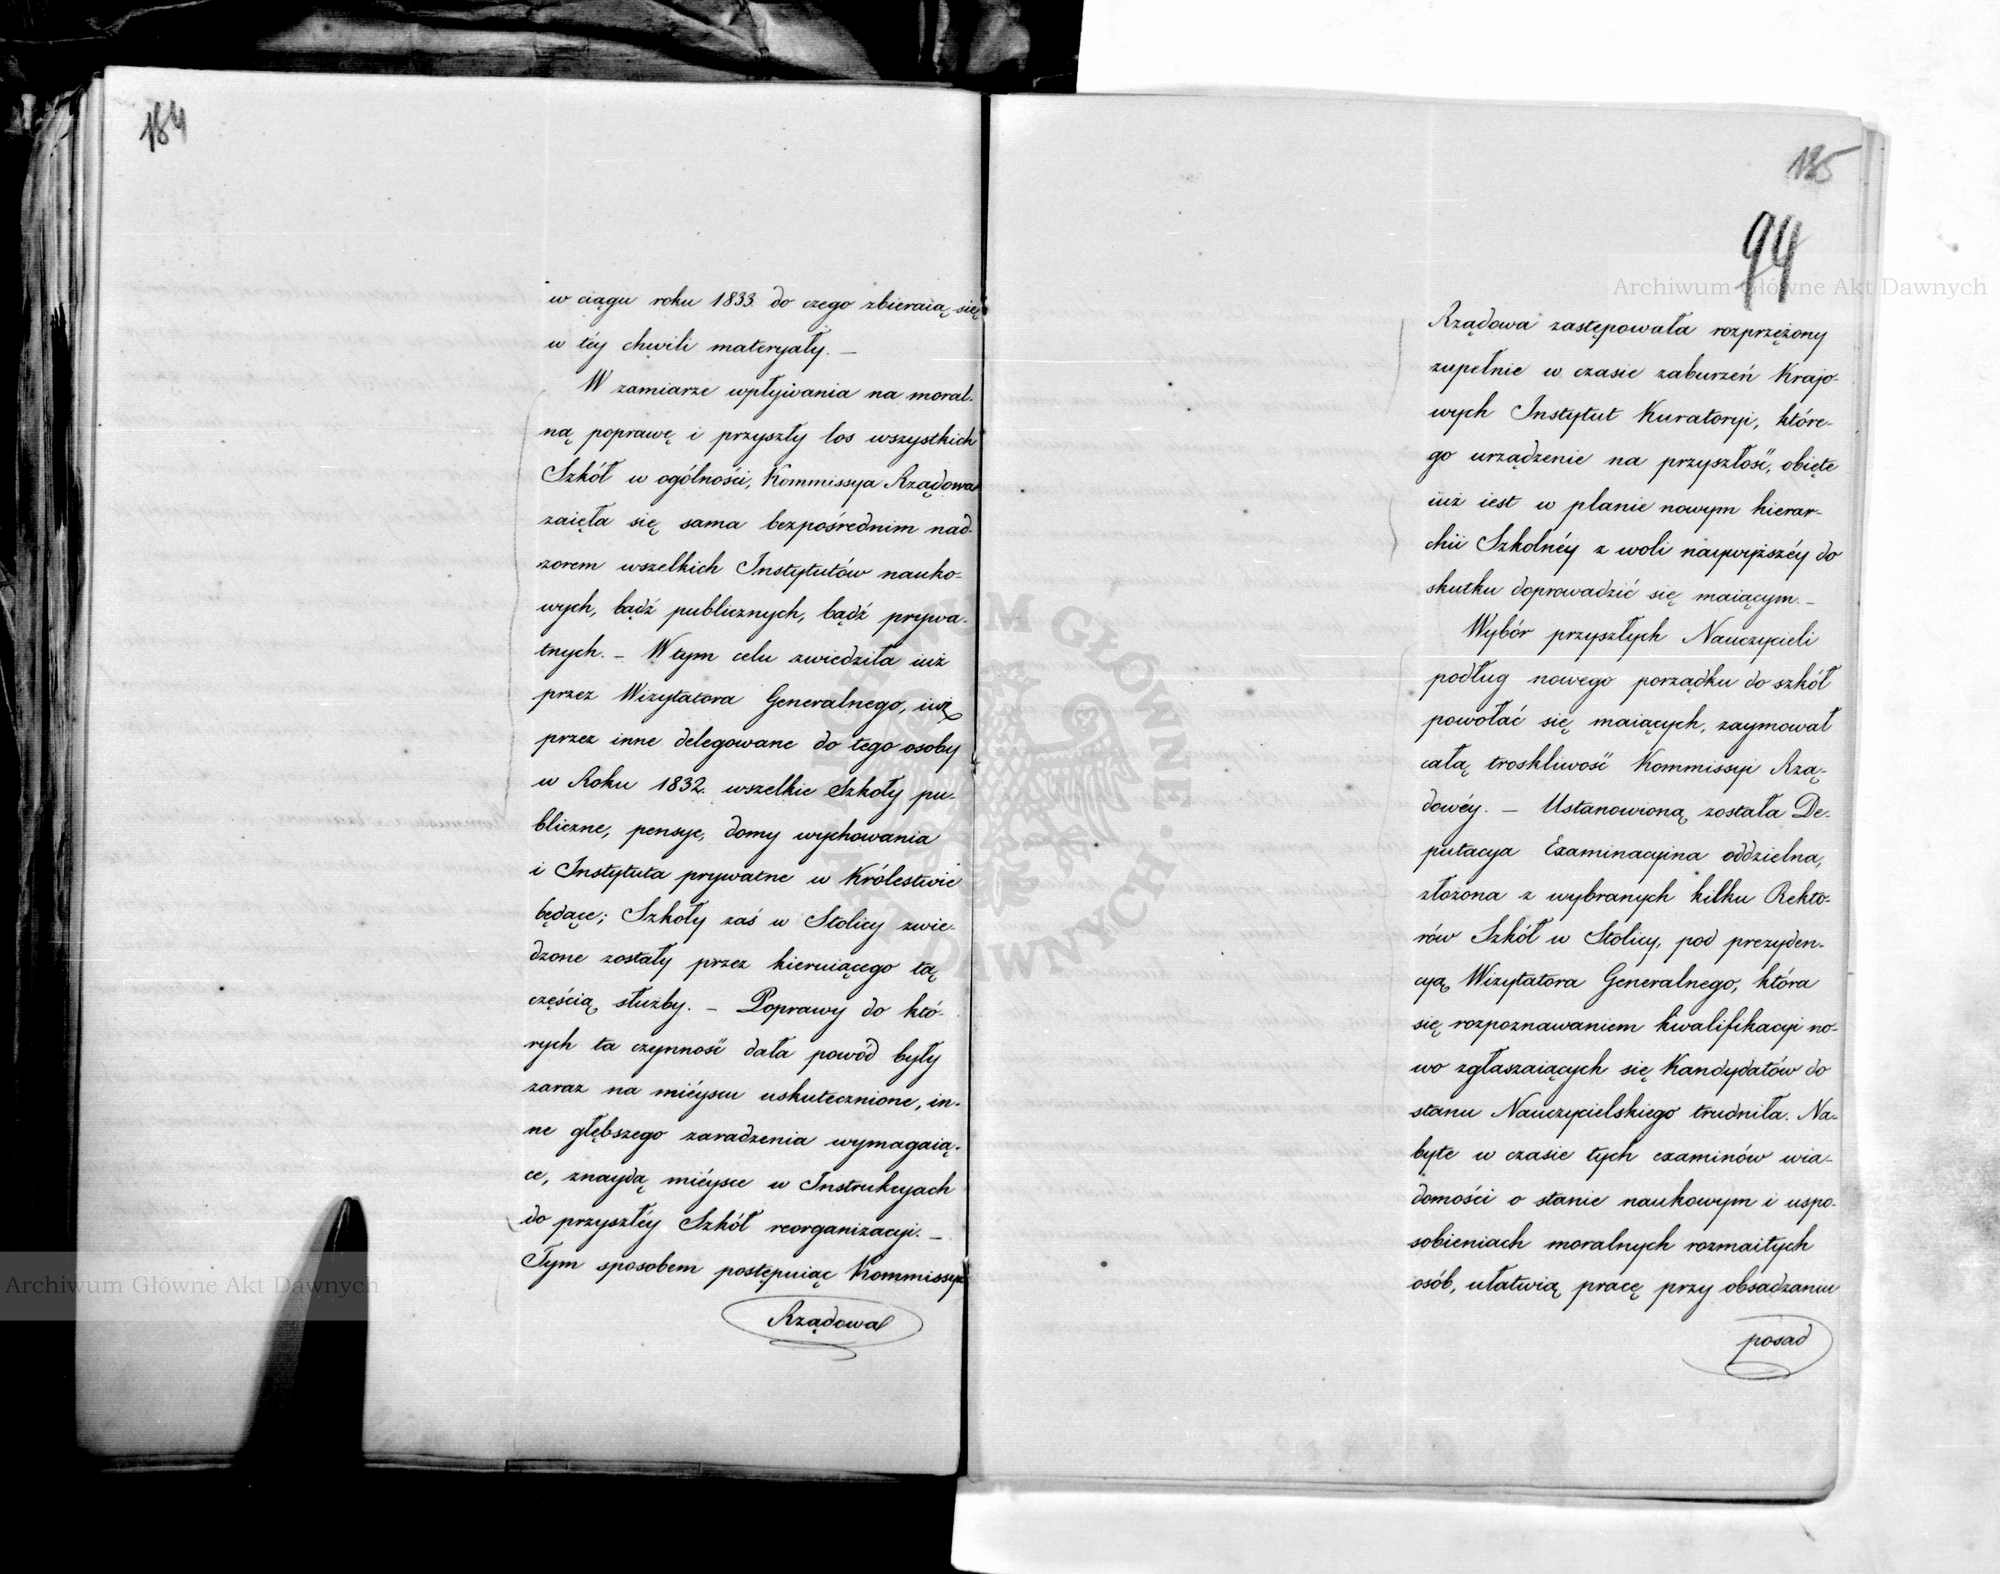 184
w ciągu roku 1833. do czego zbieraią się
w téy chwili materyały. —
W zamiarze wpływania na moral-
ną poprawę i przyszły los wszystkich
Szkół w ogólności, Kommissya Rządowa
zaięła się sama bezpośrednim nad-
zorem wszelkich Instytutów nauko-
wych, bądź publicznych, bądź prywa-
tnych. — W tym celu zwiedziła iuż
przez Wizytatora Generalnego, iuż
przez inne delegowane do tego osoby
w Roku 1832. wszelkie Szkoły pu-
bliczne, pensye, domy wychowania
i Instytuta prywatne w Królestwie
będące; Szkoły zaś w Stolicy zwie-
dzone zostały przez kieruiącego tą
częścią służby. — Poprawy do któ-
rych ta czynność dała powód były
zaraz na miéyscu uskutecznione, in-
ne głębszego zaradzenia wymagaią-
ce, znaydą miéysce w Instrukcyach
do przyszłéy Szkół reorganizacyi. —
Tym sposobem postępuiąc Kommissya
Rządowa
185
94
Rządowa zastępowała rozprzężony
zupełnie w czasie zaburzeń Krajo-
wych Instytut Kuratoryi, które-
go urządzenie na przyszłość, obięte
iuż iest w planie nowym hierar-
chii Szkolnéy z woli naywyższéy do
skutku doprowadzić się maiącym. —
Wybór przyszłych Nauczycieli
podług nowego porządku do szkół
powołać się maiących, zaymował
całą troskliwość Kommissyi Rzą-
dowéy. — Ustanowioną została De-
putacya Examinacyina oddzielna,
złożona z wybranych kilku Rekto-
rów Szkół w Stolicy, pod prezyden-
cyą Wizytatora Generalnego, która
się rozpoznawaniem kwalifikacyi no-
wo zgłaszaiących się Kandydatów do
stanu Nauczycielskiego trudniła. Na-
byte w czasie tych examinów wia-
domości o stanie naukowym i uspo-
sobieniach moralnych rozmaitych
osób, ułatwią pracę przy obsadzaniu
posad
Archiwum Główne Akt Dawnych
Archiwum Główne Akt Dawnych
ARCHIWUM GŁÓWNE AKT DAWNYCH